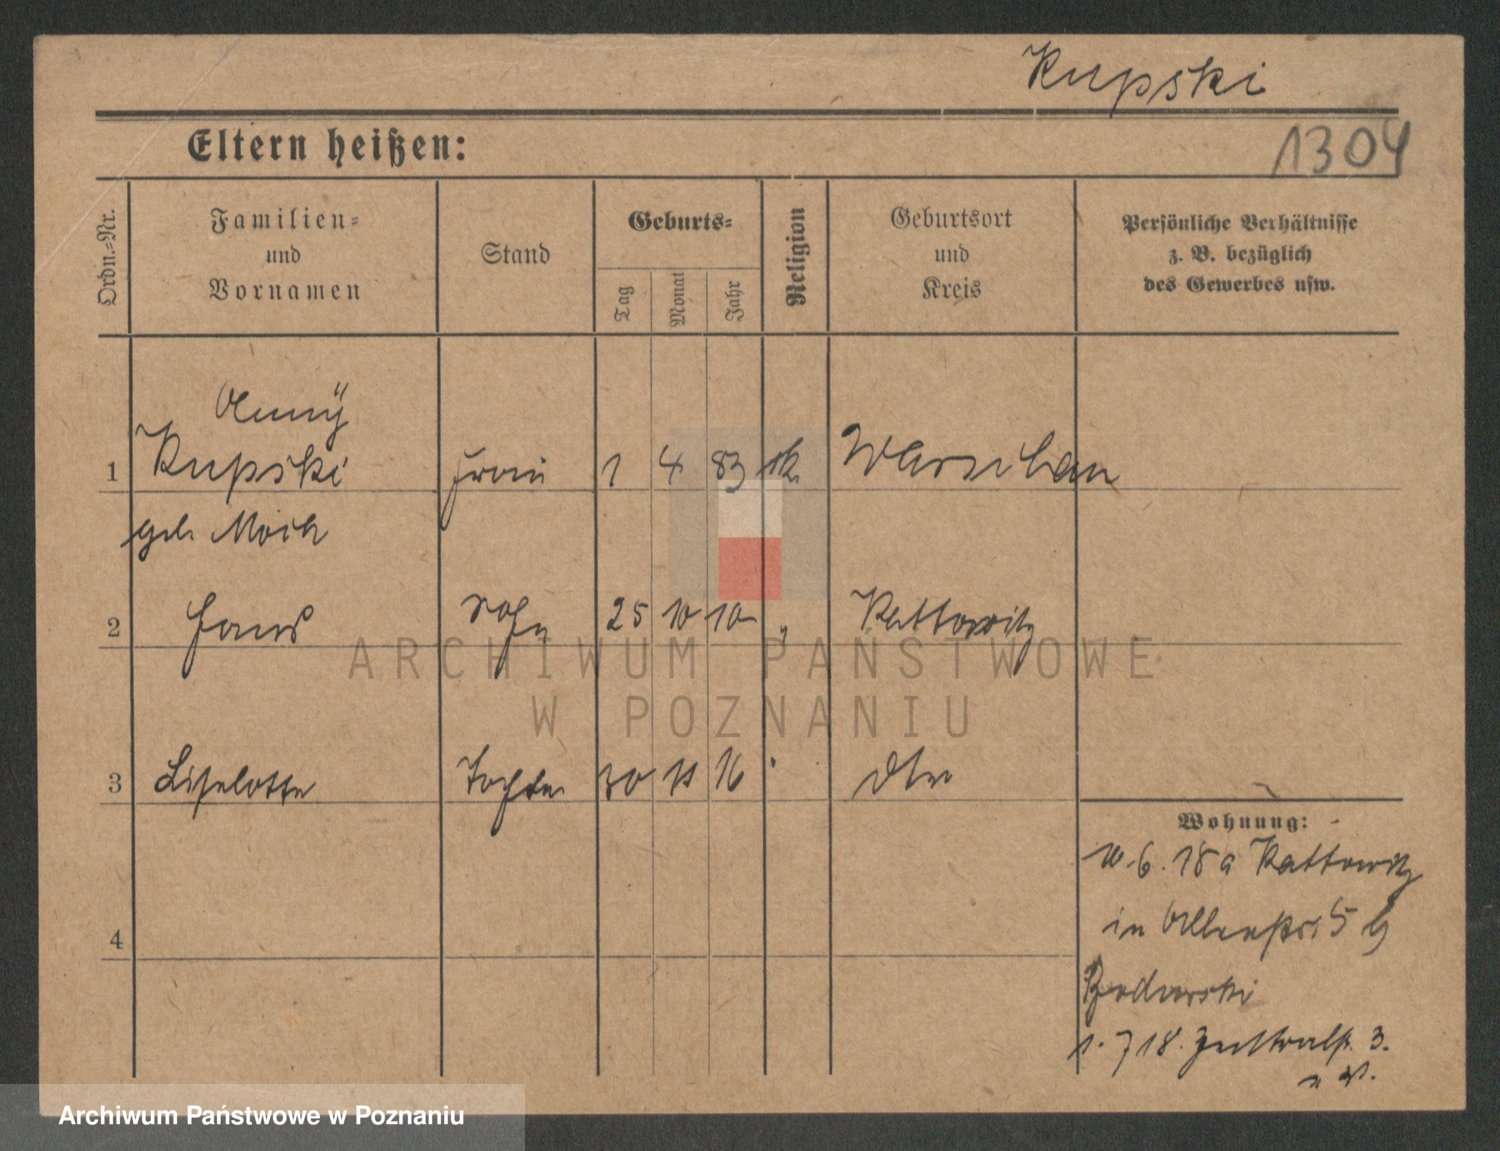 Kupski
1304
Eltern heißen:
Ordn.-Nr.
Familien-
und
Vornamen
Stand
Geburts-
Tag
Monat
Jahr
Religion
Geburtsort
und
Kreis
Persönliche Verhältnisse
z. B. bezüglich
des Gewerbes usw.
Anny
1 Kupski Frau 1 4 83 k. Warschau
geb.
2 Hans Sohn 25 10 10 " Kattowitz
3 Liselotte Tochter 30 11 16 " dto
Wohnung:
10.6.18 a Kattowitz
in 5 b
4
1.7 18. 3.
ARCHIWUM PAŃSTWOWE
W POZNANIU
Archiwum Państwowe w Poznaniu